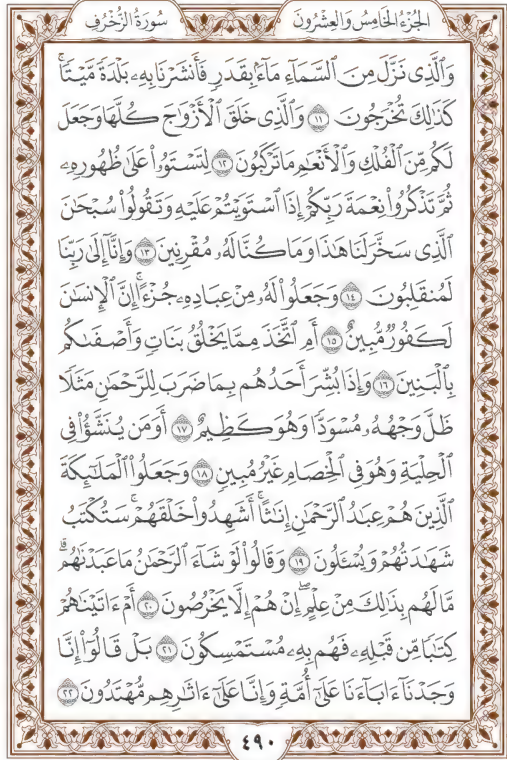 الجُزْءُ الخَامِسُ وَالعِشْرُونَ سُورَةُ الزُّخْرُفِ
وَٱلَّذِى نَزَّلَ مِنَ ٱلسَّمَآءِ مَآءًۢ بِقَدَرٍ فَأَنشَرْنَا بِهِۦ بَلْدَةً مَّيْتًا ۚ
كَذَٰلِكَ تُخْرَجُونَ ١١ وَٱلَّذِى خَلَقَ ٱلْأَزْوَٰجَ كُلَّهَا وَجَعَلَ
لَكُم مِّنَ ٱلْفُلْكِ وَٱلْأَنْعَٰمِ مَا تَرْكَبُونَ ١٢ لِتَسْتَوُۥا۟ عَلَىٰ ظُهُورِهِۦ
ثُمَّ تَذْكُرُوا۟ نِعْمَةَ رَبِّكُمْ إِذَا ٱسْتَوَيْتُمْ عَلَيْهِ وَتَقُولُوا۟ سُبْحَٰنَ
ٱلَّذِى سَخَّرَ لَنَا هَٰذَا وَمَا كُنَّا لَهُۥ مُقْرِنِينَ ١٣ وَإِنَّآ إِلَىٰ رَبِّنَا
لَمُنقَلِبُونَ ١٤ وَجَعَلُوا۟ لَهُۥ مِنْ عِبَادِهِۦ جُزْءًا ۚ إِنَّ ٱلْإِنسَٰنَ
لَكَفُورٌ مُّبِينٌ ١٥ أَمِ ٱتَّخَذَ مِمَّا يَخْلُقُ بَنَاتٍ وَأَصْفَىٰكُم
بِٱلْبَنِينَ ١٦ وَإِذَا بُشِّرَ أَحَدُهُم بِمَا ضَرَبَ لِلرَّحْمَٰنِ مَثَلًا
ظَلَّ وَجْهُهُۥ مُسْوَدًّا وَهُوَ كَظِيمٌ ١٧ أَوَمَن يُنَشَّؤُا۟ فِى
ٱلْحِلْيَةِ وَهُوَ فِى ٱلْخِصَامِ غَيْرُ مُبِينٍ ١٨ وَجَعَلُوا۟ ٱلْمَلَٰٓئِكَةَ
ٱلَّذِينَ هُمْ عِبَٰدُ ٱلرَّحْمَٰنِ إِنَٰثًا ۚ أَشَهِدُوا۟ خَلْقَهُمْ ۚ سَتُكْتَبُ
شَهَٰدَتُهُمْ وَيُسْـَٔلُونَ ١٩ وَقَالُوا۟ لَوْ شَآءَ ٱلرَّحْمَٰنُ مَا عَبَدْنَٰهُم ۗ
مَّا لَهُم بِذَٰلِكَ مِنْ عِلْمٍ ۖ إِنْ هُمْ إِلَّا يَخْرُصُونَ ٢٠ أَمْ ءَاتَيْنَٰهُمْ
كِتَٰبًا مِّن قَبْلِهِۦ فَهُم بِهِۦ مُسْتَمْسِكُونَ ٢١ بَلْ قَالُوٓا۟ إِنَّا
وَجَدْنَآ ءَابَآءَنَا عَلَىٰٓ أُمَّةٍ وَإِنَّا عَلَىٰٓ ءَاثَٰرِهِم مُّهْتَدُونَ ٢٢
٤٩٠